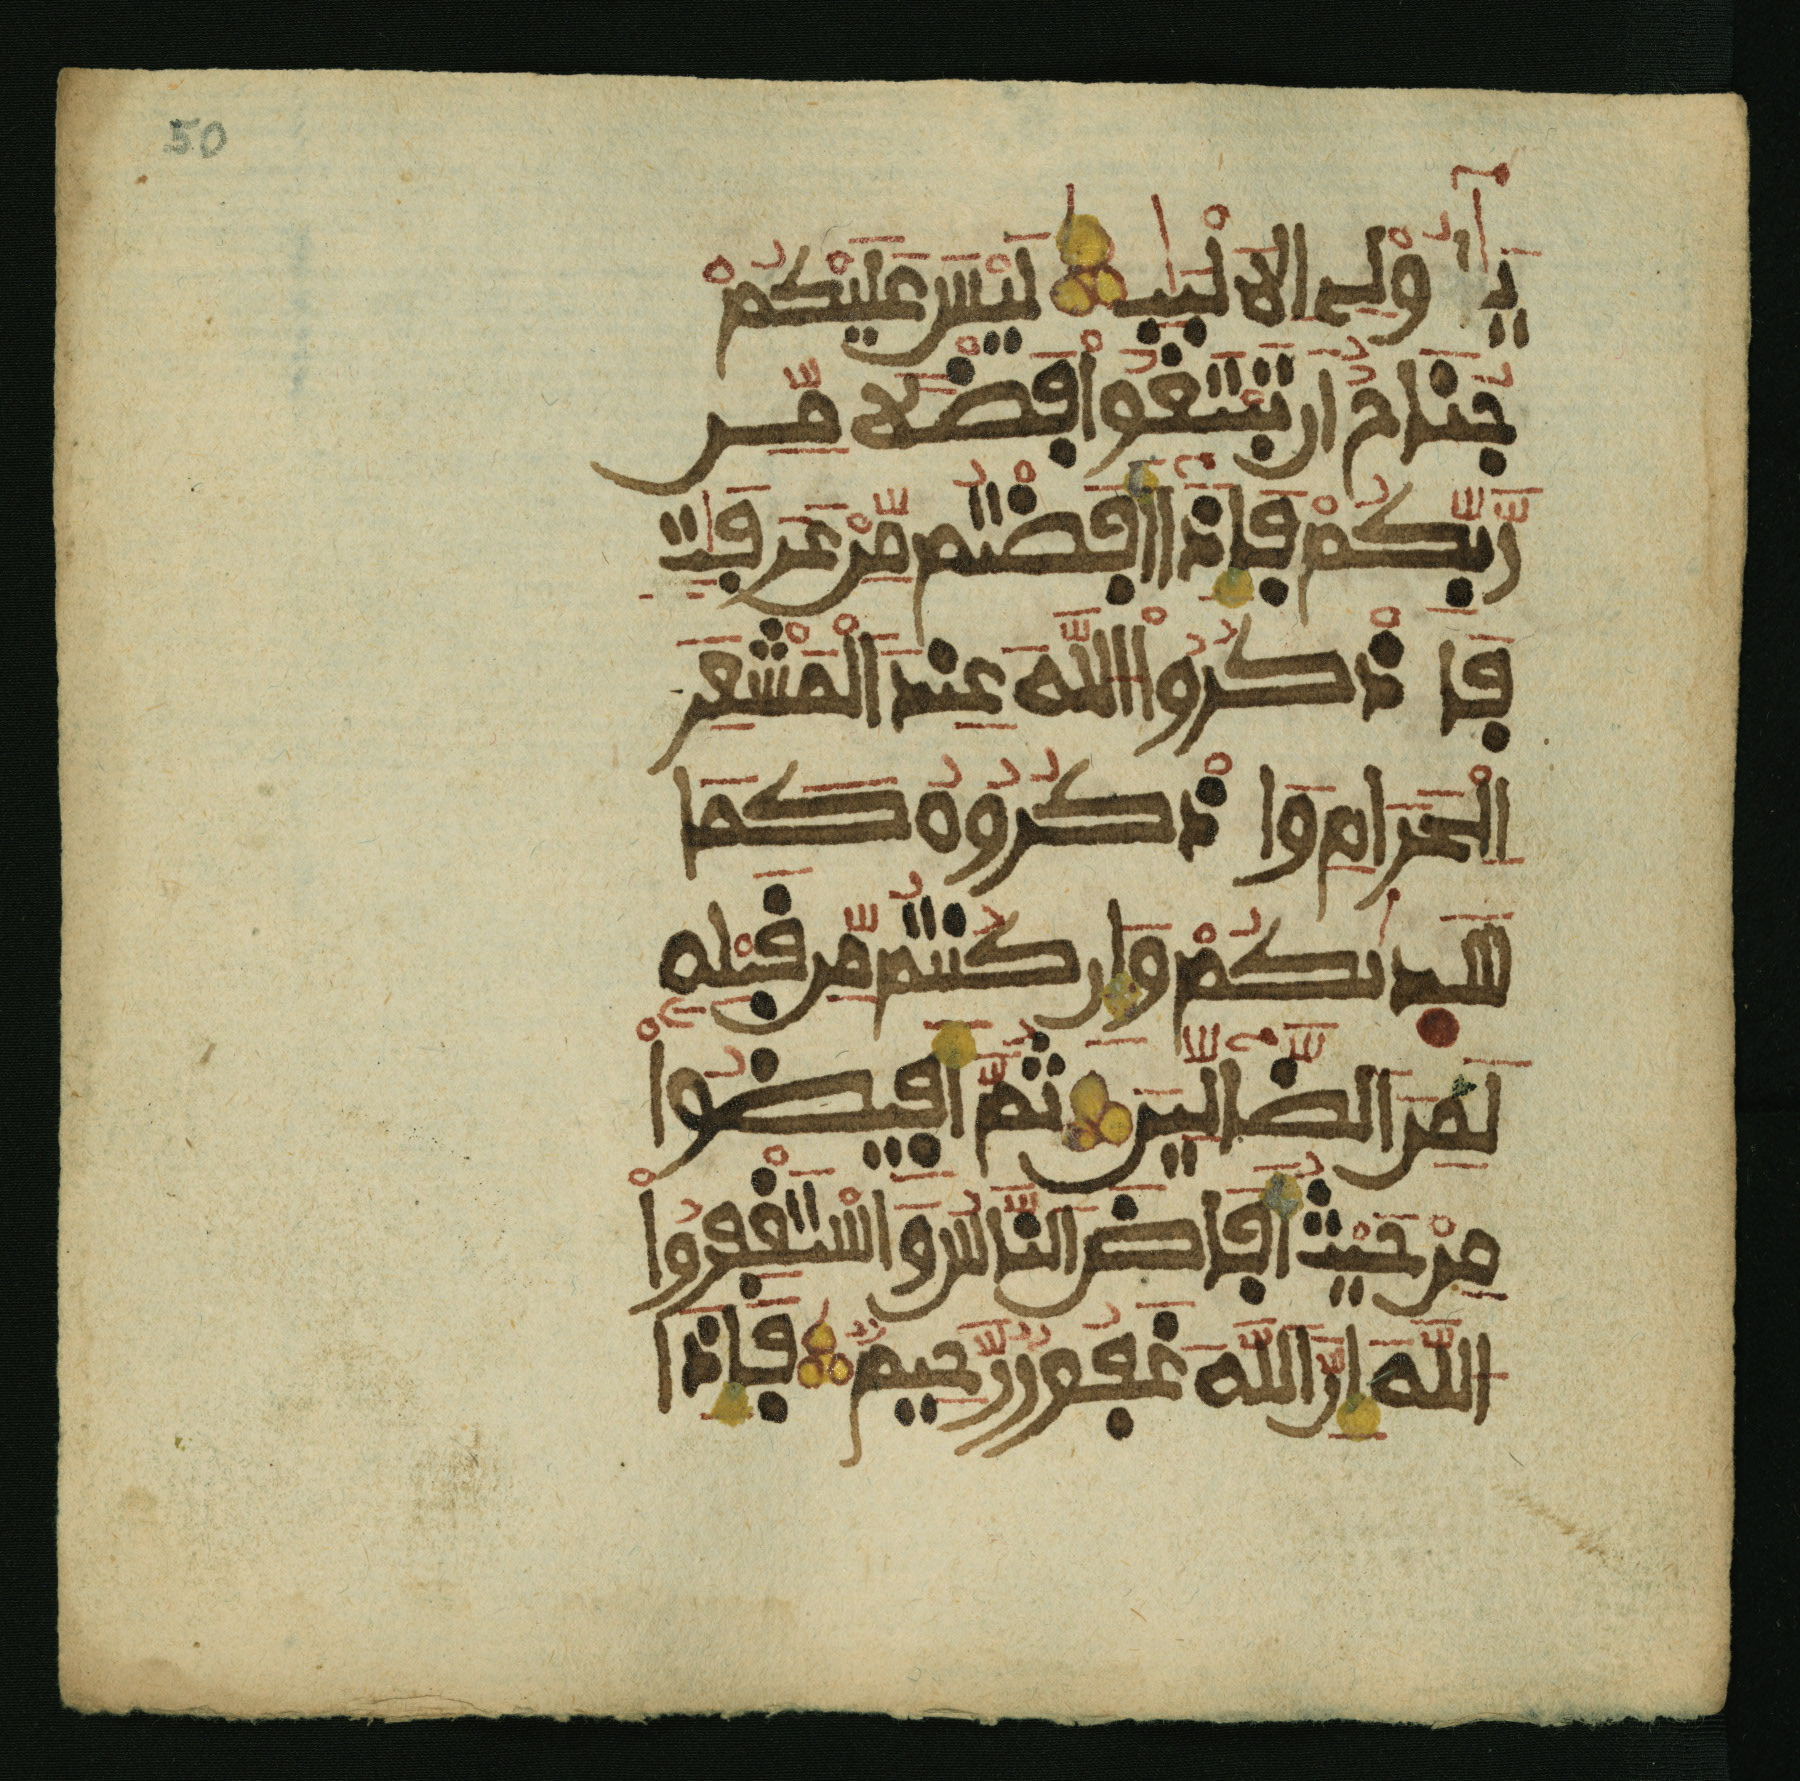 50
يَٰٓأُوْلِے اِ۬لَالْبَٰبِۖ لَيْسَ عَلَيْكُمْ
جُنَاحٌ اَن تَبْتَغُواْ فَضْلاٗ مِّن
رَّبِّكُمْ فَإِذَآ أَفَضْتُم مِّنْ عَرَفَٰتٖ
فَاذْكُرُواْ اُ۬للَّهَ عِندَ اَ۬لْمَشْعَرِ
اِ۬لْحَرَامِ وَاذْكُرُوهُ كَمَا
هَدٜىٰكُمْ وَإِن كُنتُم مِّن قَبْلِهِۦ
لَمِنَ اَ۬لضَّآلِّينَۖ ثُمَّ أَفِيضُواْ
مِنْ حَيْثُ أَفَاضَ اَ۬لنَّاسُ وَاسْتَغْفِرُواْ
اُ۬للَّهَ إِنَّ اَ۬للَّهَ غَفُورٞ رَّحِيمٞۖ فَإِذَا